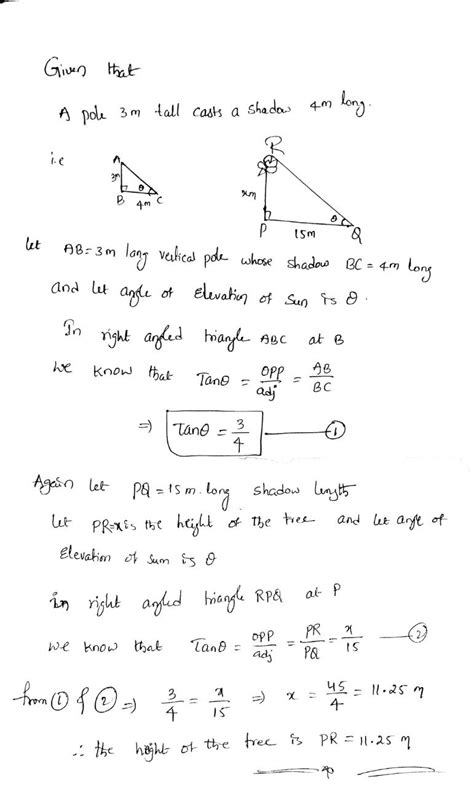 Given that
A pole 3m tall casts a shadow 4m long.
i.e
A
3m
B
4m
C
θ
R
xm
P
15m
Q
θ
let AB=3m long vertical pole whose shadow BC=4m long
and let angle of Elevation of Sun is θ.
In right angled triangle ABC at B
We know that Tanθ = opp/adj = AB/BC
⇒ Tanθ = 3/4 ①
Again let PQ=15m. long shadow length
let PR=x is the height of the tree and let angle of
Elevation of sum is θ
in right angled triangle RPQ at P
we know that Tanθ = opp/adj = PR/PQ = x/15 ②
from ① & ② ⇒ 3/4 = x/15 ⇒ x = 45/4 = 11.25 m
∴ the height of the tree is PR = 11.25 m